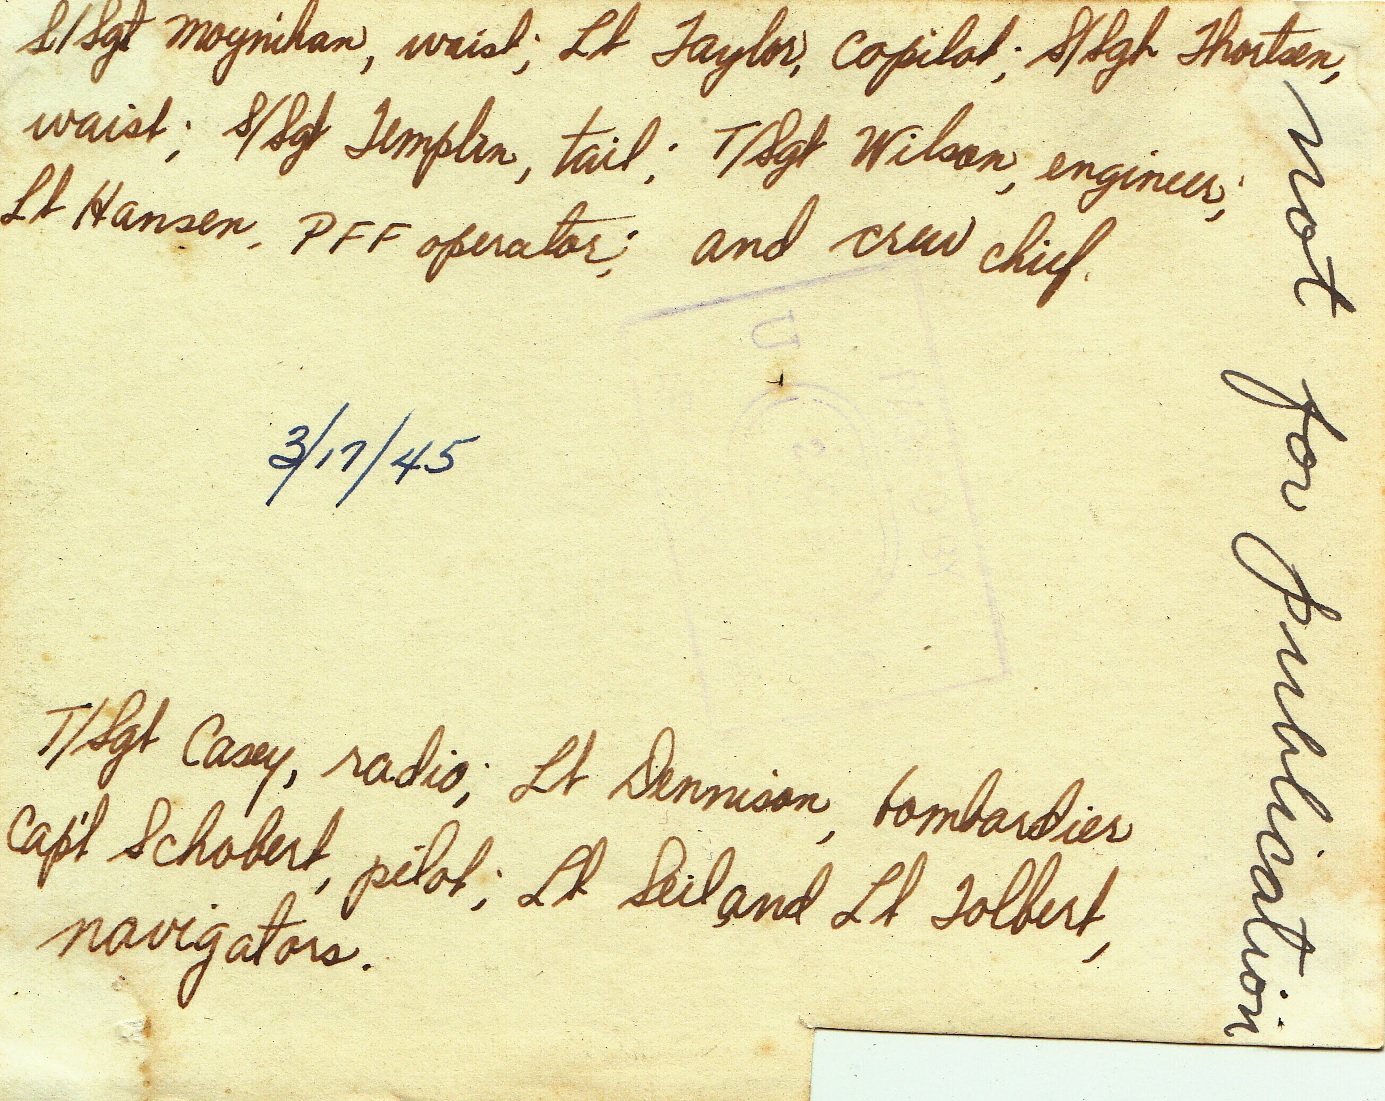 S/Sgt Moynihan, waist; Lt Taylor, copilot; S/Sgt Thortsen,
waist; S/Sgt Templin, tail; T/Sgt Wilson, engineer;
Lt Hansen, PFF operator; and crew chief.
not for publication
U
3/17/45
T/Sgt Casey, radio; Lt Dennison, bombardier
Capt Schobert, pilot; Lt Seil and Lt Tolbert,
navigators.